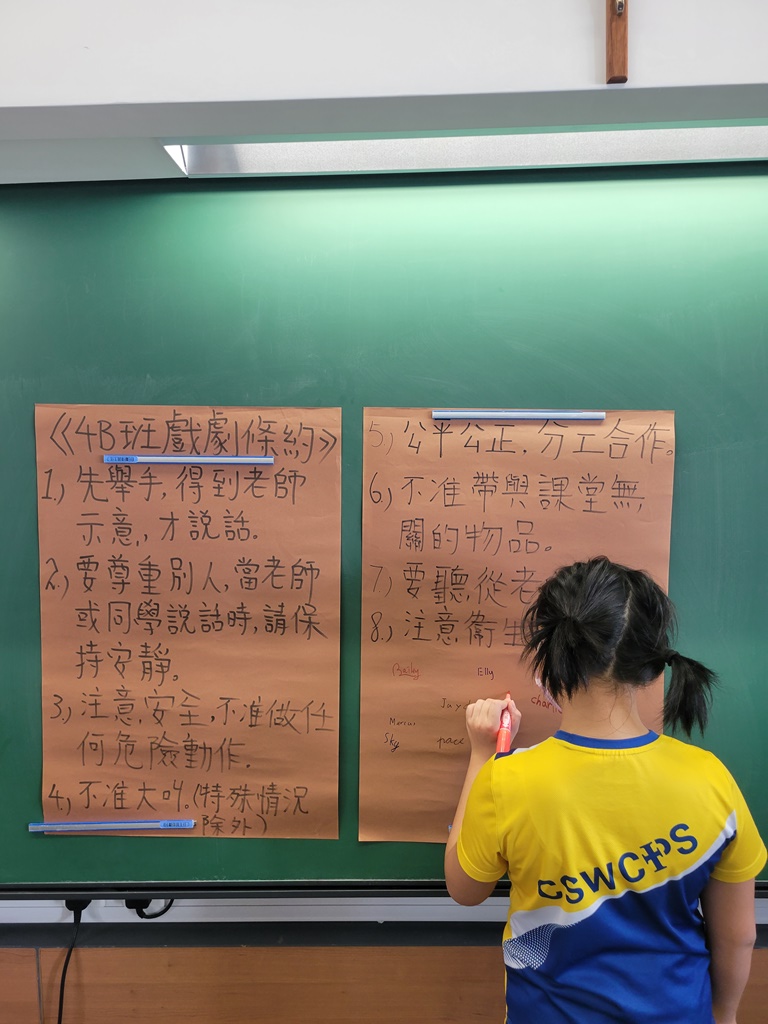 《4B班戲劇條約》
1.) 先舉手,得到老師
示意,才說話。
2.) 要尊重別人,當老師
或同學說話時,請保
持安靜。
3.) 注意安全,不准做任
何危險動作.
4.) 不准大叫。(特殊情況
除外)
5.) 公平公正,分工合作。
6.) 不准帶與課堂無
關的物品。
7.) 要聽從老
8.) 注意衛生
Bailey
Elly
Jay
Marcus
Sky
CSWCPS